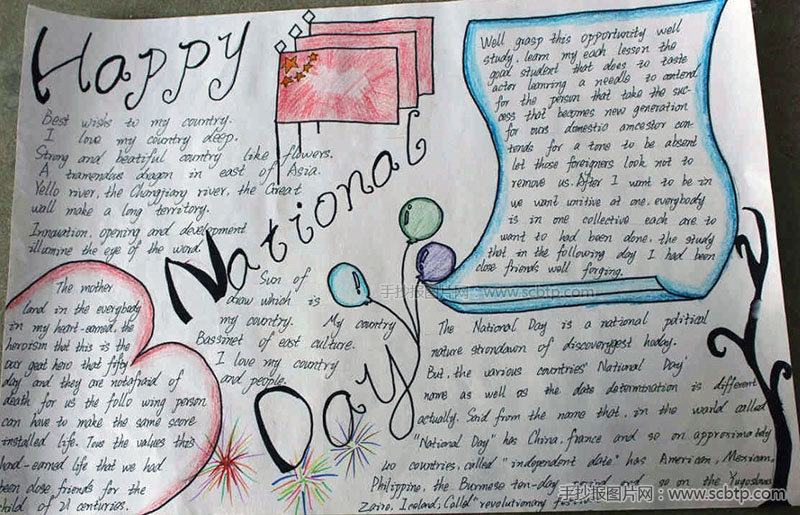 Happy
National
Day
Best wishs to my country.
I love my country deep.
Strong and beatiful country like flowers.
A tramendous dragon in east of Asia.
Yello river, the Changjiang river, the Great
wall make a long territory.
Innovation, opening and development
illumine the eye of the word.
Sun of
draw which is
my country. My country
Bassinet of east culture.
I love my country
and people.
The mother
land in the everybody
in my heart-earned, the
heroism that this is the
our geat hero that fifty
day and they are notafraid of
death for us the follo wing person
can have to make the same score
installed life. Twe the values this
hard-earned life that we had
been close friends for the
child of 21 centuries.
Well grasp this opportunity well
study, learn my each lesson the
goad student that does to taste
actor learring a needle to contend
for the person that take the suc-
cess that becomes new generation
for ours domestic ancestor con-
tends for a tone to be absent
let those foreigners look not to
remove us. After I want to be in
we want unitive at one, everybody
is in one collective each are to
want to had been done, the study
that in the following day I had been
close friends well forging.
The National Day is a national political
nature
But, the various countries' National Day'
name as well as the date determination is different
actually. Said from the name that, in the world called
"National Day" has China, france and so on approximately
40 countries, called "independent date" has American, Mexican,
Philippine, the Burmese ten-day and so on the Yugoslavia
Zaire, Iceland; Called "revolutionary
手抄报图片网：www.scbtp.com
手抄报图片网：www.scbtp.com